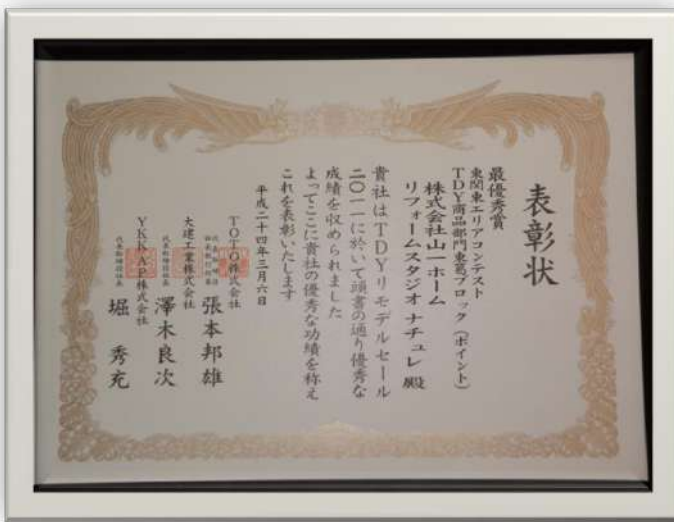 表彰状
最優秀賞
東関東エリアコンテスト
TDY商品部門東葛ブロック(ポイント)
株式会社山一ホーム
リフォームスタジオ ナチュレ 殿
貴社はTDYリモデルセール
二〇一一に於いて頭書の通り優秀な
成績を収められました
よってここに貴社の優秀な功績を称え
これを表彰いたします
平成二十四年三月六日
TOTO株式会社
張本邦雄
大建工業株式会社
代表取締役社長
澤木良次
YKKAP株式会社
代表取締役社長
堀 秀充